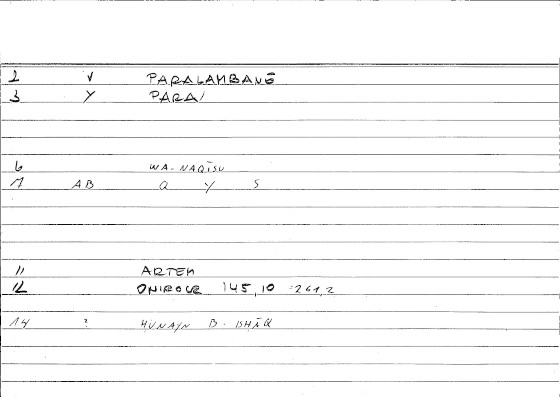 2 V PARALAMBANŌ
3 Y PARAI
6 WA-NAQĪSU
7 AB Q Y S
11 ARTEM
12 ONIROCR 145,10 = 261,2
14 ? HUNAYN B. ISHĀQ